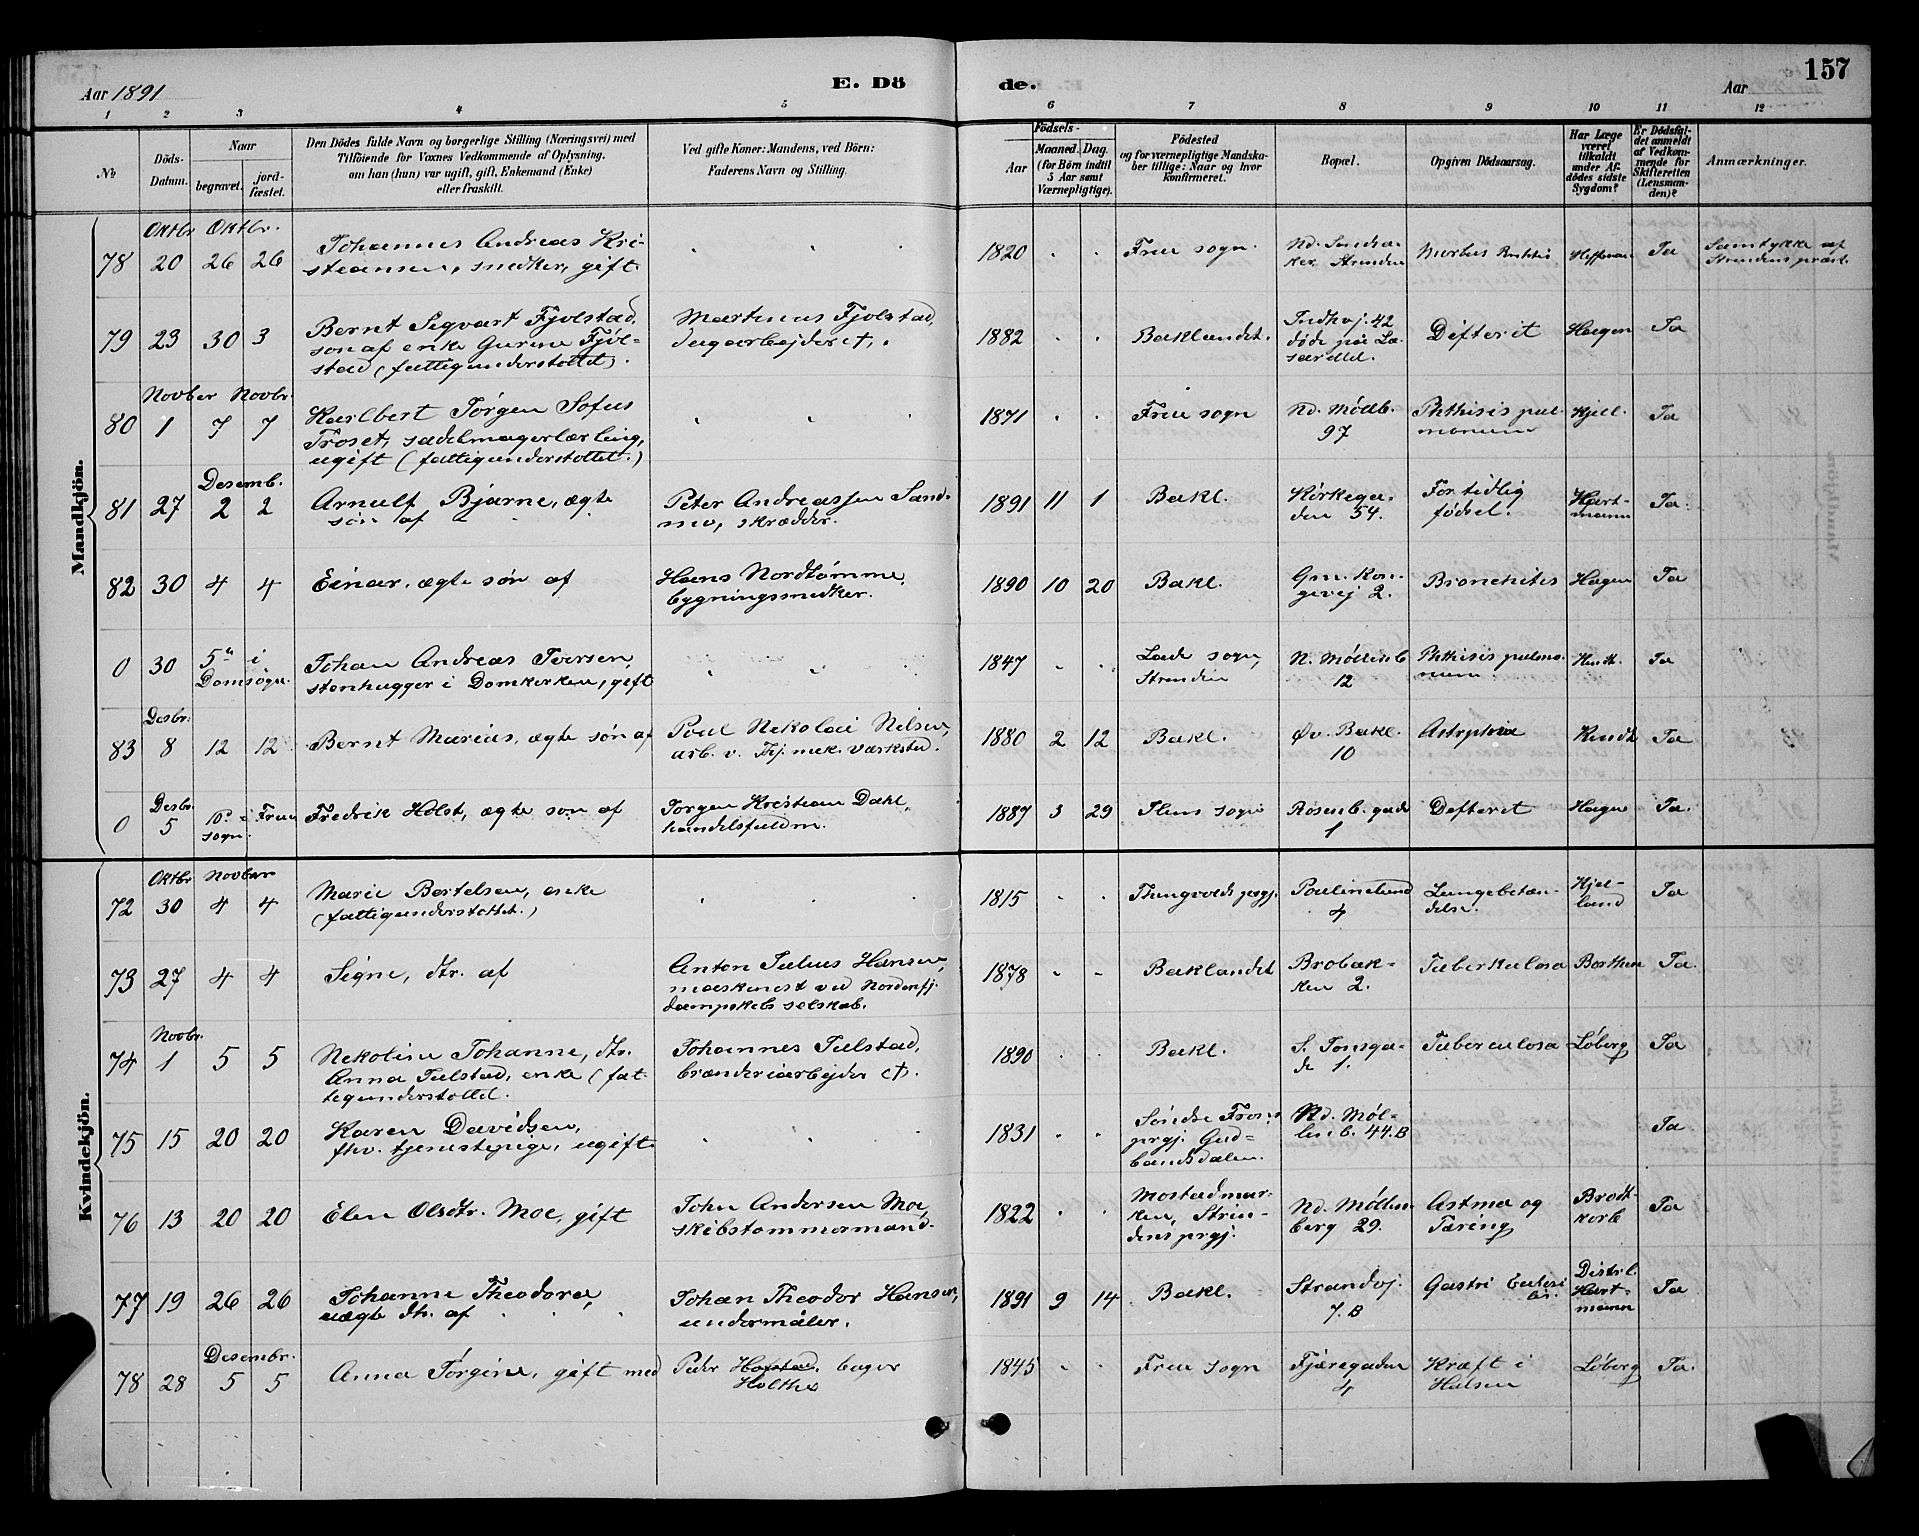 Aar 1891
E. Dö
de.
Aar
157
1 2 3 4 5 6 7 8 9 10 11 12
№
Döds-Datum.
Naar
begravet.
jord-fæstet.
Den Dödes fulde Navn og borgerlige Stilling (Næringsvei) med
Tilföiende for Voxnes Vedkommende af Oplysning,
om han (hun) var ugift, gift, Enkemand (Enke)
eller fraskilt.
Ved gifte Koner: Mandens, ved Börn:
Faderens Navn og Stilling.
Födsels-
Aar
Maaned. Dag.
(for Börn indtil
5 Aar samt
Værnepligtige).
Födested
og for værnepligtige Mandska-
ber tillige: Naar og hvor
konfirmeret.
Bopæl.
Opgiven Dödsaarsag.
Har Læge
været
tilkaldt
under Af-
dödes sidste
Sygdom?
Er Dödsfal-
det anmeldt
af Vedkom-
mende for
Skifteretten
(Lensman-
den)?
Anmærkninger.
Mandkjön.
Oktbr Oktbr.
78 20 26 26 Johannes Andreas Kri-
steansen, snedker, gift
1820 Frue sogn. Nd.
Strinden Morbus Ja Samtykke af
Strindens præst.
79 23 30 3 Bernt Sigvart Fjolstad,
søn af enke Gurine Fjol-
stad (fattigunderstottet).
Martinus Fjolstad,
dagarbejder †.
1882 Baklandet. Indhvj. 42
døde på La-
sarettet.
Difterit Hagen Ja
Novber Novbr.
80 1 7 7 Karlbert Jørgen Sofus
Troset, sadelmagerlærling,
ugift (fattigunderstottet.)
1871 Frue sogn Nd. Møllb.
97
Phthisis pul-
monum Kjell. Ja
Desemb.
81 27 2 2 Arnulf Bjarne, ægte
søn af
Peter Andreassen Sand-
mo, skrædder.
1891 11 1 Bakl. Kirkega-
den 54.
For tidlig
fødsel.
Hart-
mann Ja.
82 30 4 4 Einar, ægte søn af
Hans Nordtømme,
bygningssnedker.
1890 10 20 Bakl. Gm. Kon-
gevej 2.
Bronchitis Hagen Ja
0 30 5" i
Domsogn.
Johan Andreas Iversen,
stenhugger i Domkirken, gift
1847 Lade sogn,
Strinden
N. Møllenb
12
Phthisis pulmo-
num. Ja
Desbr.
83 8 12 12 Bernt Marius, ægte søn af
Poul Nekolai Nilsen,
arb. v. Thj. mek. værksted.
1880 2 12 Bakl. Øv. Bakl.
10
Ja
Desbr.
0 5 10. i Frue
sogn.
Fredrik Holst, ægte søn af
Jørgen Kristian Dahl,
handelsfuldm.
1887 3 29 Ilens sogn Rosenb. gade
1
Defterit Hagen Ja.
Kvindekjön.
Oktbr Novber
72 30 4 4 Marie Bertelsen, enke
(fattigunderstottet.)
1815 Thingvolds prgj. Poulinelund
4
Lungebetæn-
delse.
Kjel-
land Ja
73 27 4 4 Signe, dtr. af
Anton Julius Hansen,
maskinist ved Nordenfj.
dampskibsselskab.
1878 Baklandet Brobak-
ken 2.
Tuberkulosa Borthen Ja.
Novbr.
74 1 5 5 Nekoline Johanne, dtr.
Anna Julstad, enke (fat-
tigunderstottet.
Johannes Julstad,
brænderiarbejder †.
1890 Bakl. S. Jonsga-
de 1.
Tuberculosa Løborg Ja
75 15 20 20 Karen Davidsen,
fhv. tjenestepige, ugift
1831 Søndre Frons
prgj. Gud-
bandsdalen.
Nd. Møl-
lenb. 44.B
Ja
76 13 20 20 Elen Olsdtr. Moe, gift
John Andersen Moe,
skibstømmermand.
1822 Mostadmar-
ken, Strin-
dens prgj.
Nd. Møllen
berg 29.
Astma og
Tæring
Brodt-
korb Ja
77 19 26 26 Johanne Theodora,
uægte dtr. af
Johan Theodor Hansen,
undermåler.
1891 9 14 Bakl. Strandvj.
7. B
Gastri Distrl.
Hart-
mann Ja
Desembr.
78 28 5 5 Anna Jørgine, gift med
Peter bager
Holthe
1845 Frue sogn Fjæregaden
4
Kræft i
Halsen
Løborg Ja.